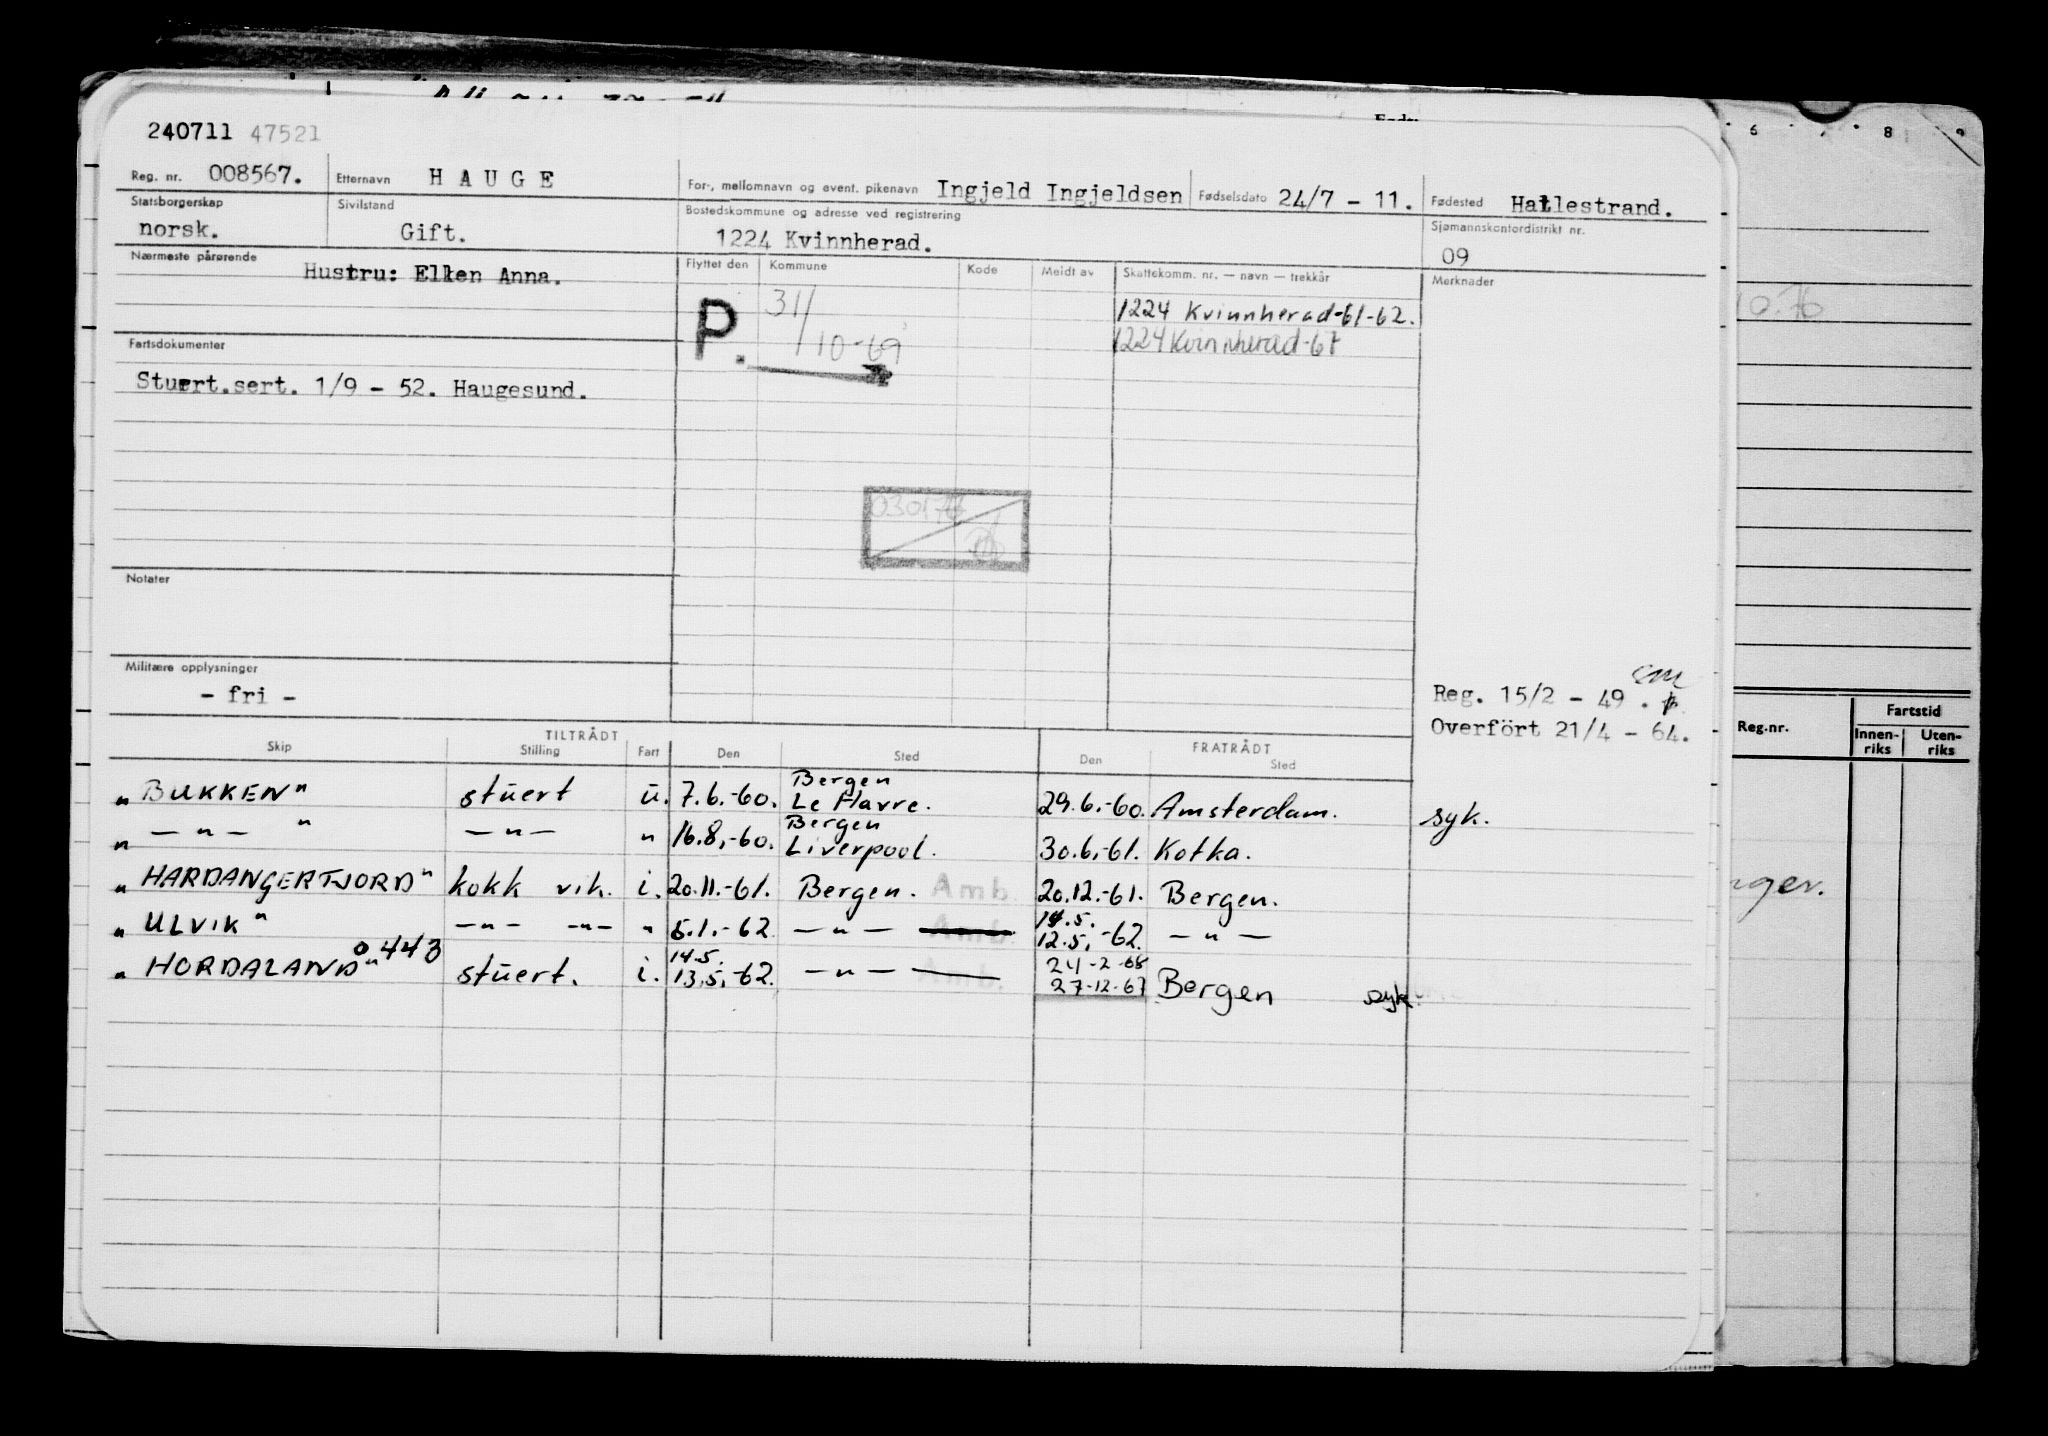 240711 47521
Reg. nr. 008567. Etternavn HAUGE For-, mellomnavn og event. pikenavn Ingjeld Ingjeldsen Fødselsdato 24/7 - 11. Fødested Hallestrand.
Statsborgerskap norsk. Sivilstand Gift. Bostedskommune og adresse ved registrering 1224 Kvinnherad. Sjømannskontordistrikt nr. 09
Nærmeste pårørende Hustru: Ellen Anna.
Flyttet den Kommune Kode Meldt av Skattekomm. nr. — navn — trekkår Merknader
P. 31/10-69
1224 Kvinnherad-61-62.
1224 Kvinnherad-67
Fartsdokumenter
Stuert.sert. 1/9 - 52. Haugesund.
030176
Notater
Militære opplysninger
- fri -
Reg. 15/2 - 49.
Overfört 21/4 - 64.
TILTRÅDT FRATRÅDT
Skip Stilling Fart Den Sted Den Sted
„BUKKEN" stuert u. 7.6.-60. Bergen Le Havre. 29.6.-60. Amsterdam. syk.
„ — " — " — " — " 16.8.-60. Bergen Liverpool. 30.6.-61. Kotka.
„HARDANGERFJORD" kokk vik. i. 20.11.-61. Bergen. Amb 20.12.-61. Bergen.
„ULVIK" — " — — " — " 5.1.-62 — " — Amb. 14.5. 12.5.-62. — " —
„HORDALAND" 0443 stuert. i. 14.5. 13.5.-62. — " — Amb. 24-2-68 27-12-67 Bergen syk.
6 8 9
10.76
Reg.nr. Fartstid
Innen-riks Uten-riks
nger.